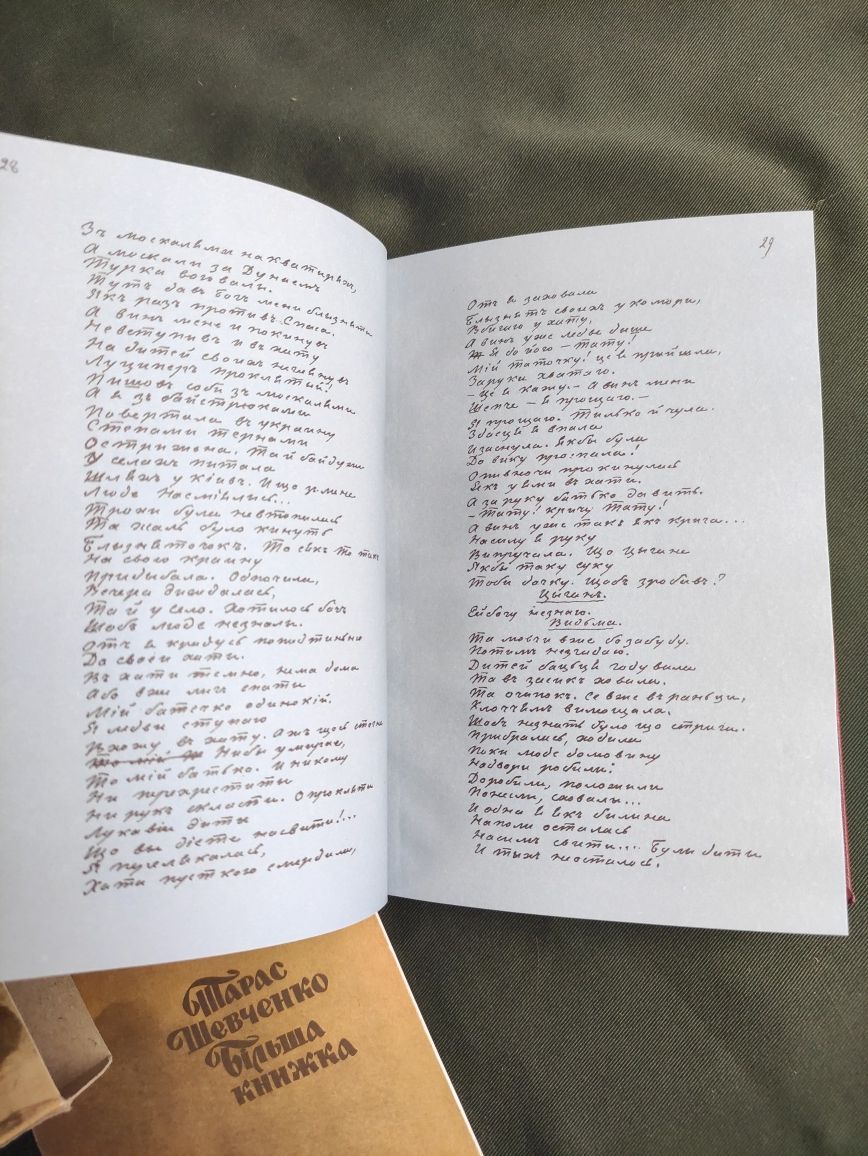 28
Зъ москалямы на кватыряхъ,
А москали за Дунаемъ
Турка воювалы.
Тутъ давъ Богъ мени близнята
Якъ разъ противъ Спаса.
А винъ мене и покинувъ
Невступивъ и въ хату
На дитей своихъ неглянувъ
Луциперъ проклятий!
Пишовъ соби зъ москалями
А я зъ байстрюками
Повертала въ украину
Степами тернами
Острижена. Та й байдуже
У селахъ питала
Шляхъ у Кіивъ. И що згляне
Люде Насміялись...
Трохи була невтопилась
Та жаль було кинуть
Близняточокъ. То сякъ то такъ
На свою краину
Прибыбала. Одпочила,
Вечера дигидалась,
Та й у село. Хотилось бачъ
Щобъ люде незнали.
Отъ я крадусь попидтинню
До своеи хати.
Въ хати темно, нима дома
Або вже лигъ спати
Мій батечко одинокій.
Я ледви ступаю
Вхожу, въ хату. Ажъ щось стогне
Ниби умирае,
То мій батько. И никому
Ни перехрестити
Ни рукъ скласти. О прокляти
Лукавіи дити
Що вы діете насвити!...
Я перелякалась,
Хата пусткою смердила,
29
Отъ я заховала
Близнятъ своихъ у коморі,
Вбигаю у хату,
А винъ уже ледве дише
Я до його — тату!
Мій таточку! це я прийшла,
За руки хватаю.
— Це я кажу. — А винъ мени
Шепче — я прощаю. —
Я прощаю. Тилько й чула.
Здаеця я впала
И заснула. якбы була
До вику проспала!
Опивночи прокинулась
Якъ у ями въ хати.
А за руку батько давить.
— Тату! кричу Тату!
А винъ уже такъ якъ крига...
Насилу я руку
Випручала. Що Цыгане
Якбы таку суку
Тоби дочку. Щобъ зробивъ?
Цыганъ.
Ей богу незнаю.
Видьма.
Та мовчи вже бо забуду.
Потимъ незгадаю.
Дитей бацьця годувала
Та въ засикъ ховали.
Та очипокъ. Се вже въ раньци,
Клоччямъ вимощала.
Щобъ незнать було що стрига.
Прибралась, ходила
Поки люде домовину
Надвори робили:
Доробили, положили
Понесли, сховалы...
И одна я якъ билина
Наполи осталась
Насимъ свити.... Були дити
И тыхъ неосталось.
Тарас
Шевченко
Більша
книжка